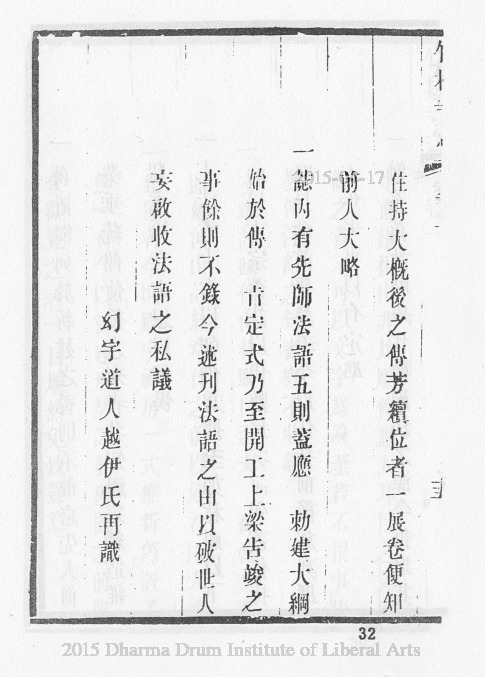 住持大概後之傳芳續位者一展卷便知
前人大略
一誌內有先師法語五則蓋應 勅建大綱
始於傳 吉定式乃至開工上梁告竣之
事餘則不錄今述刊法語之由以破世人
妄啟收法語之私議
幻字道人越伊氏再識
32
2015 Dharma Drum Institute of Liberal Arts